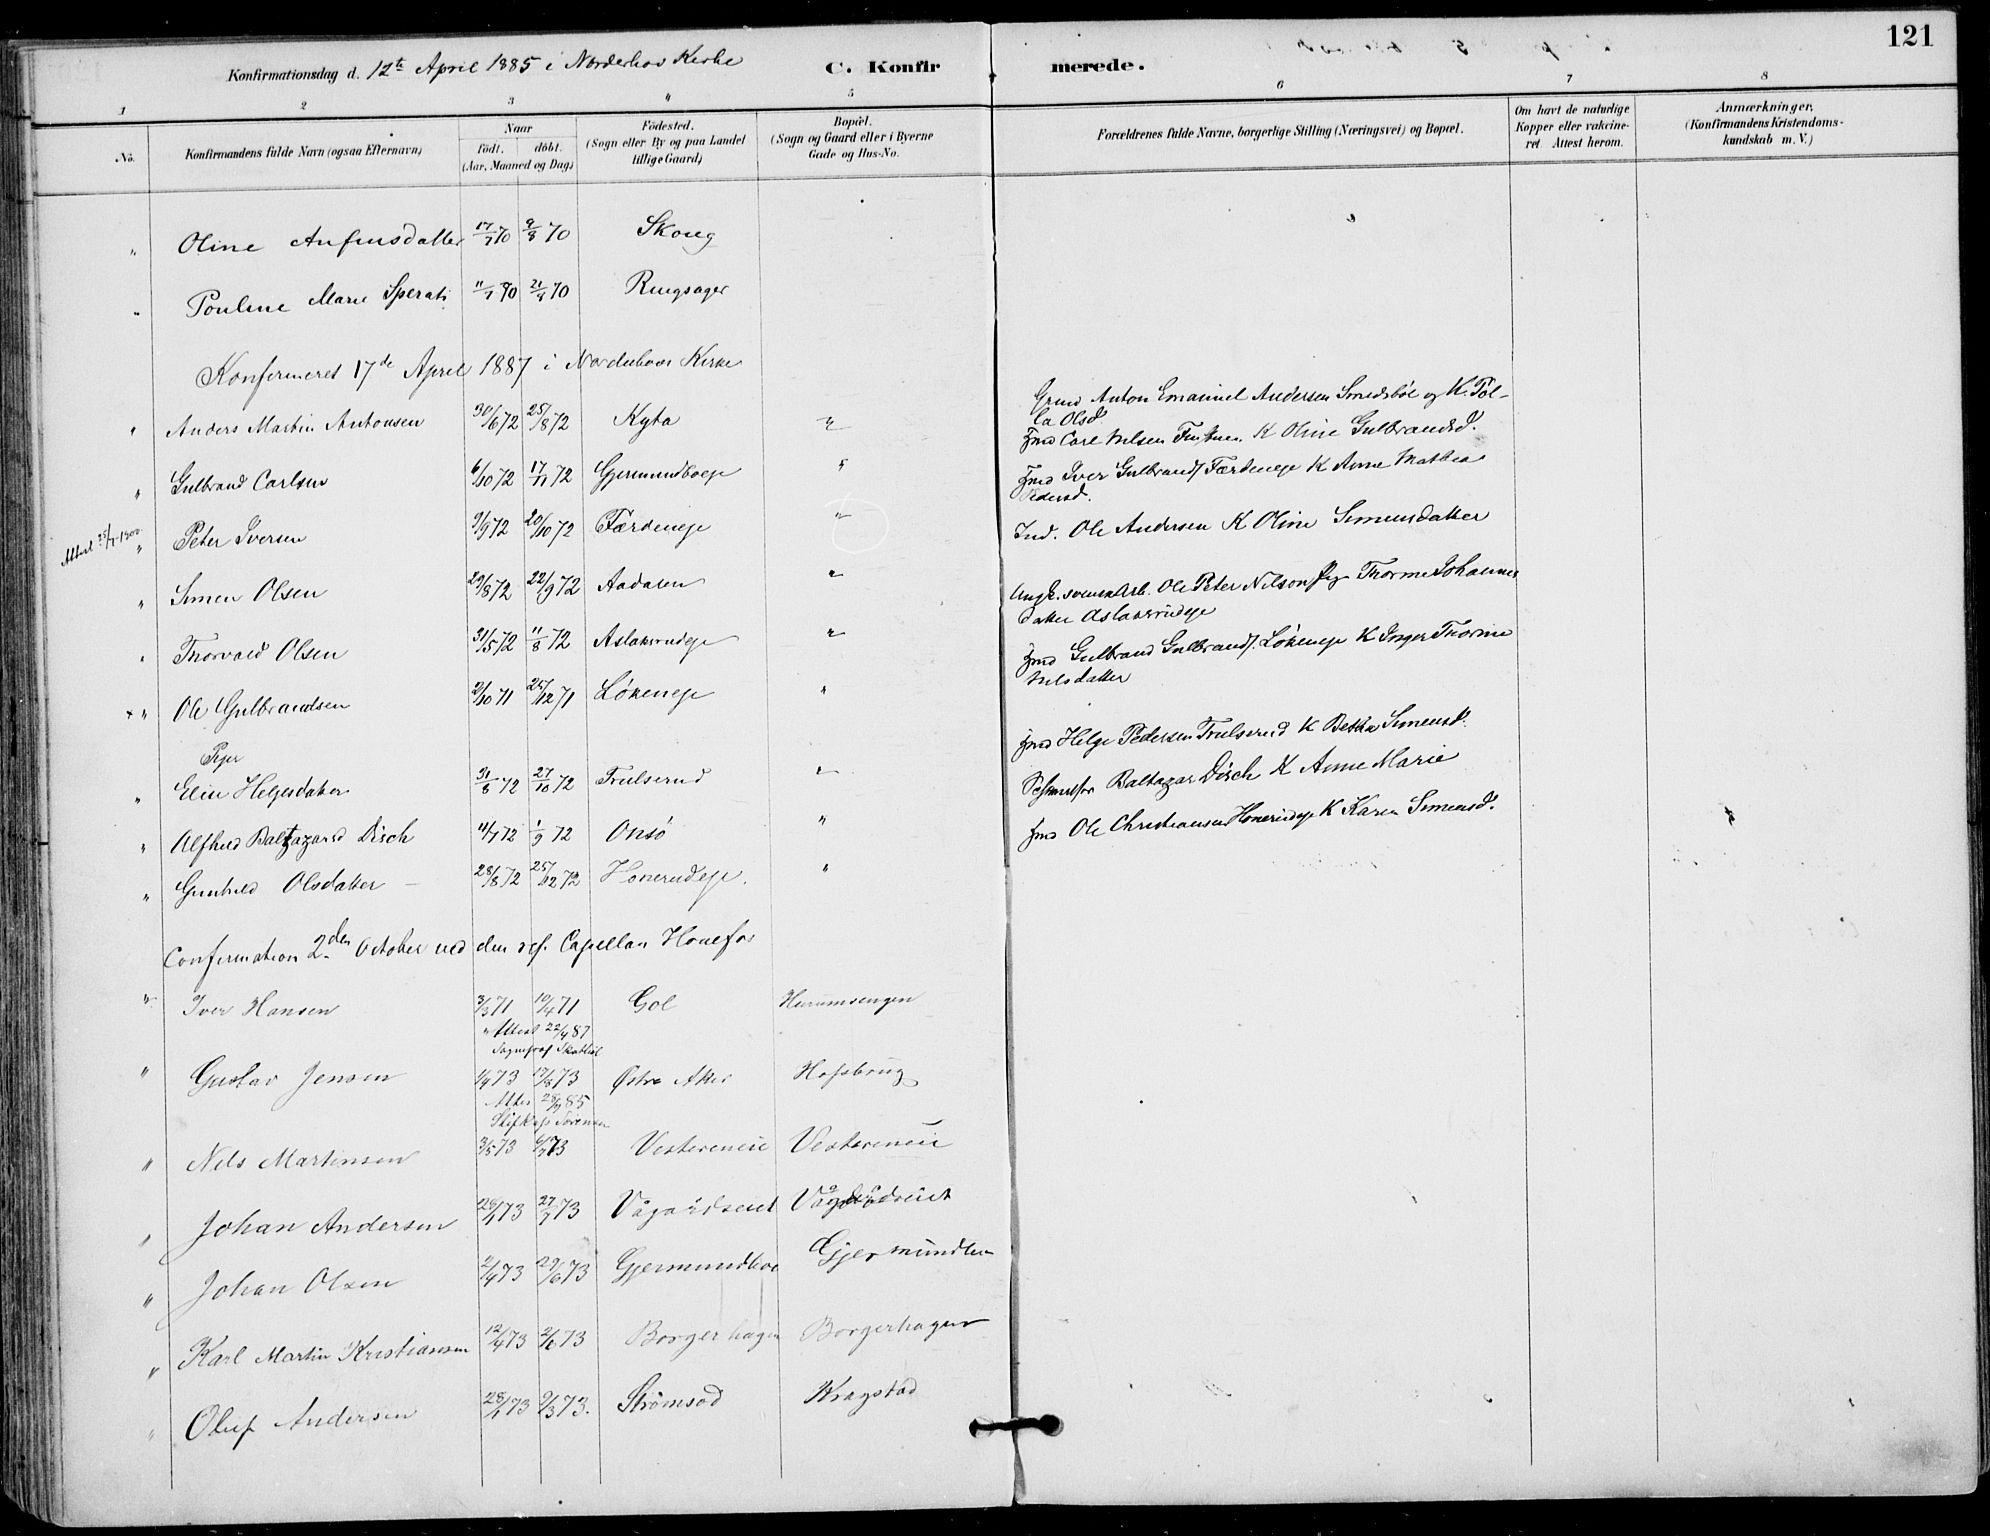 121
Konfirmationsdag d. 12te April 1885 i Norderhov Kirke C. Konfirmerede.
1 2 3 " 5 6 7 8
No. Konfirmandens fulde Navn (ogsaa Efternavn) Naar født. døbt. (Aar, Maaned og Dag) Fødested. (Sogn eller By og paa Landet tillige Gaard) Bopæl. (Sogn og Gaard eller i Byerne Gade og Hus-No. Forældrenes fulde Navne, borgerlige Stilling (Næringsvei) og Bopæl. Om havt de naturlige Kopper eller vakcineret. Attest herom. Anmærkninger, (Konfirmandens Kristendomskundskab m. V.)
" Oline Anfinsdatter 17/7 70 9/8 70 Skoug
" Pouline Marie Sperati 11/7 70 21/8 70 Ringsager
Konfirmeret 17de April 1887 i Norderhovs Kirke
" Anders Martin Antonsen 30/6 72 25/8 72 Kyta " Anton Emanuel Andersen Smedsböl og K.
Olsd
" Gulbrand Carlsen 6/10 72 17/11 72 Gjermundboeje " Inds Carl Nilsen K Oline Gulbrandsd.
Attest 1900 " Peter Iversen 9/9 72 20/10 72 Færdeneje " Inds Iver Gulbrands. Færdeneje K Anne Mathea
Pedersd.
" Simen Olsen 29/8 72 22/9 72 Aadasen " Ind. Ole Andersen K Oline Simensdatter
" Thorvald Olsen 31/5 72 11/8 72 Aslaksrudeje " Ungk. svensk Arb. Ole Peter Nilson Pig Thorine Johannes
datter Aslaksrudeje
+ " Ole Gulbrandsen 2/10 71 25/12 71 Lökeneje " Inds Gulbrand Gulbrands. Lökeneje K Inger Thorine
Nilsdatter
Piger
" Elise Helgesdatter 31/8 72 27/10 72 Trulserud " Inds Helge Pedersen Trulserud K Betha Simensd.
" Alfhild Baltazarsd Disch 11/7 72 1/9 72 Onsö " Baltazar Disch K Anne Marie
" Gunhild Olsdatter 28/8 72 25/12 72 Honerudeje. " Inds Ole Christiansen Honerudeje K Karen Simensd.
Confirmation 2den October ved den res. Capellan Honefos
" Iver Hansen 3/3 71 10/4 71 Gol Hurumsengen
" Attest 22/4 87
Sognepræst
" Gustav Jensen 1/4 73 17/8 73 Østre Aker Hofsbrug
Attes 28/9 85
Sørensen
" Nels Martinsen 3/5 73 6/7 73 Vestereneie Vestereneie
" Johan Andersen 28/1 73 27/7 73
" Johan Olsen 2/4 73 29/6 73 Gjermundboe
" Karl Martin Kristiansen 12/4 73 2/6 73 Borgerhagen Borgerhagen
" Oluf Andersen 28/1 73 9/3 73. Strömsöd Kragstad